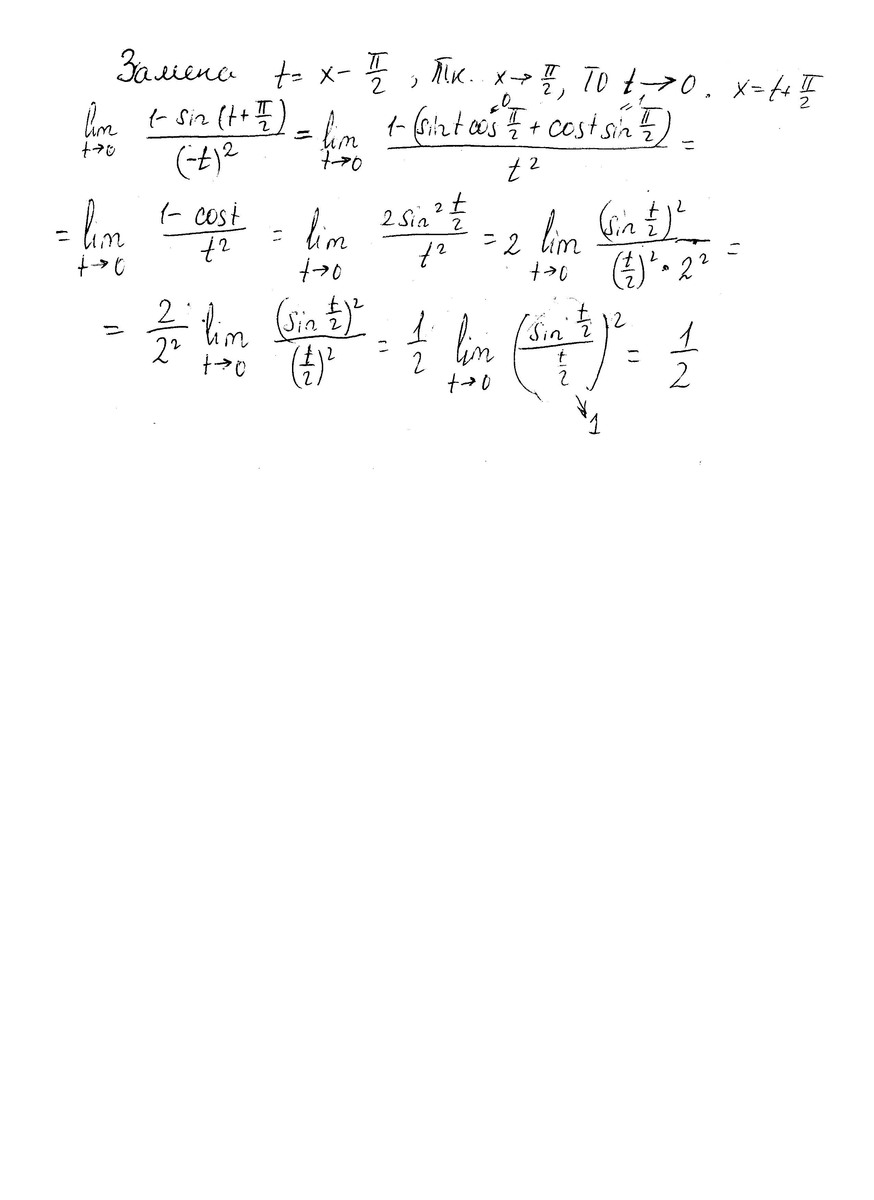 Замена t = x - π/2, т.к. x→π/2, то t→0. x = t + π/2
lim t→0 (1 - sin(t + π/2))/(-t)² = lim t→0 (1 - (sin t cos π/2 + cos t sin π/2))/t² =
= lim t→0 (1 - cos t)/t² = lim t→0 (2 sin² t/2)/t² = 2 lim t→0 (sin t/2)²/((t/2)² · 2²) =
= 2/2² lim t→0 (sin t/2)²/(t/2)² = 1/2 lim t→0 ((sin t/2)/(t/2))² = 1/2
→1